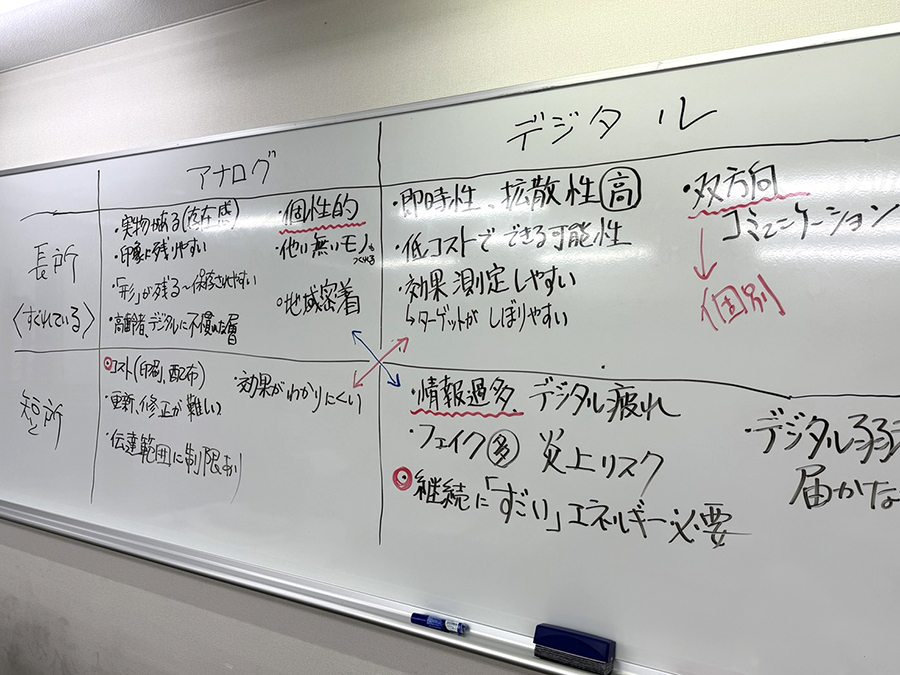 アナログ
デジタル
長所
〈すぐれている〉
・実物がある(存在感)
・印象に残りやすい
・「形」が残る〜保存されやすい
・高齢者、デジタルに不慣れな層
・個性的
・他に無いモノも
つくれる
○地域密着
・即時性、拡散性 高
・低コストでできる可能性
・効果測定しやすい
↳ターゲットがしぼりやすい
・双方向
コミュニケーション
↓
個別
短所
と
コスト(印刷、配布)
・更新、修正が難しい
・伝達範囲に制限あり
・効果がわかりにくい
・情報過多、デジタル疲れ
・フェイク 多 炎上リスク
継続に「すごい」エネルギー必要
・デジタル弱
届かな